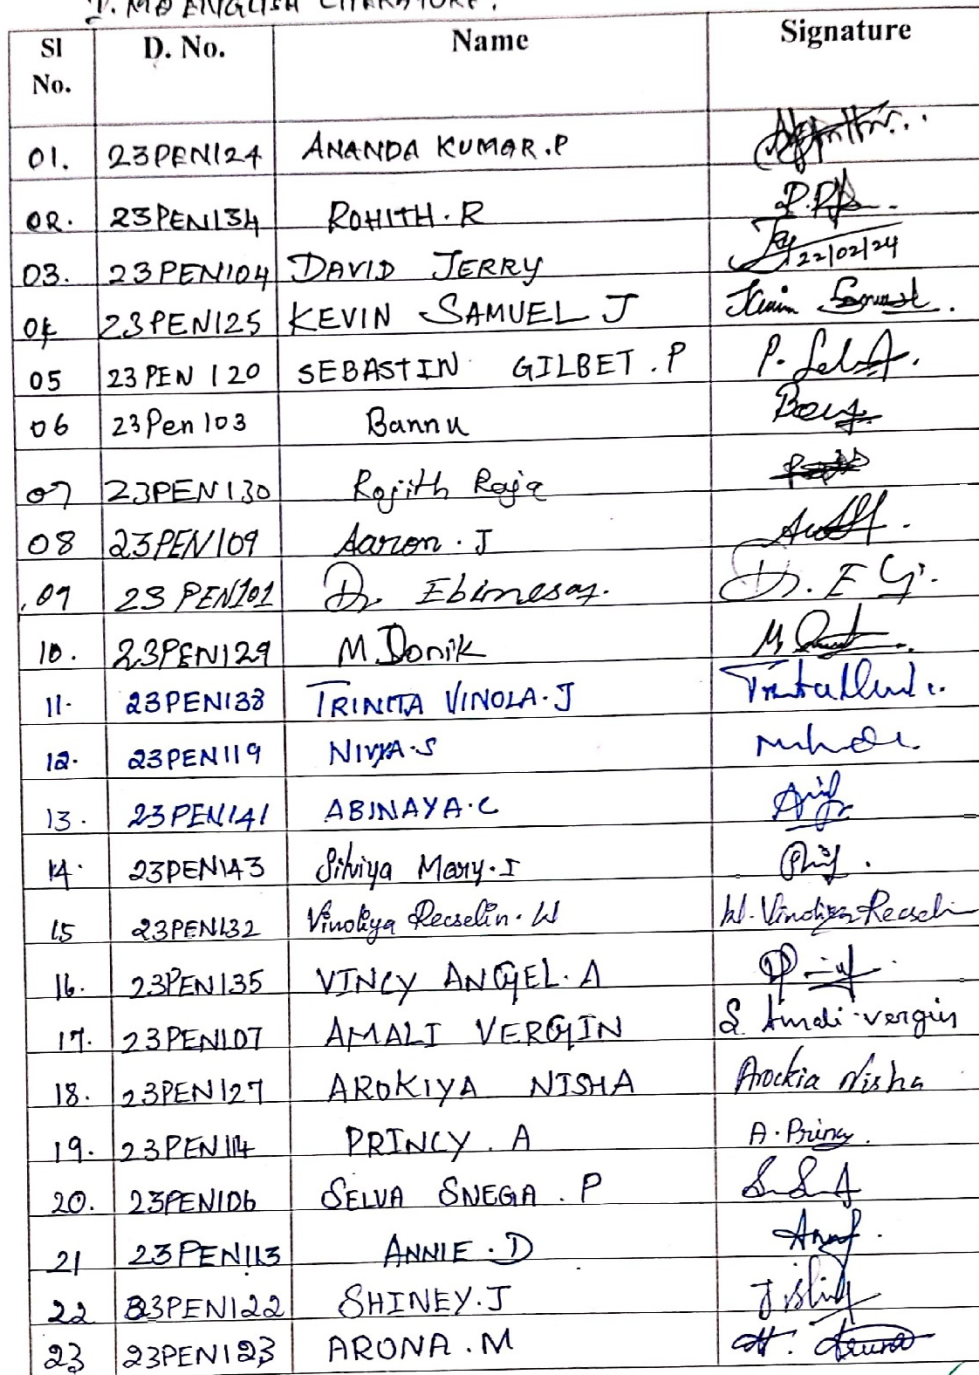 I. MA ENGLISH LITERATURE.
Sl No. D. No. Name Signature
01. 23PEN124 ANANDA KUMAR.P
02. 23PEN134 ROHITH.R
03. 23PEN104 DAVID JERRY 22/02/24
04 23PEN125 KEVIN SAMUEL J Kevin Samuel.
05 23PEN120 SEBASTIN GILBET.P
06 23Pen103 Bannu
07 23PEN130 Rajith Raja
08 23PEN109 Aaron.J
09 23PEN101 Ebinesar.
10. 23PEN129 M.Donik
11. 23PEN138 TRINITA VINOLA.J
12. 23PEN119 NIVYA.S
13. 23PEN141 ABINAYA.C
14. 23PEN143 Silviya Mary.I
15 23PEN132 Vinoliya Recselin.W W.Vinoliya Recselin
16. 23PEN135 VINCY ANGEL.A
17. 23PEN107 AMALI VERGIN S. Amali vergin
18. 23PEN127 AROKIYA NISHA Arockia Nisha
19. 23PEN114 PRINCY.A A.Princy.
20. 23PEN106 SELVA SNEGA.P
21 23PEN113 ANNIE.D
22 23PEN122 SHINEY.J
23 23PEN123 ARONA.M